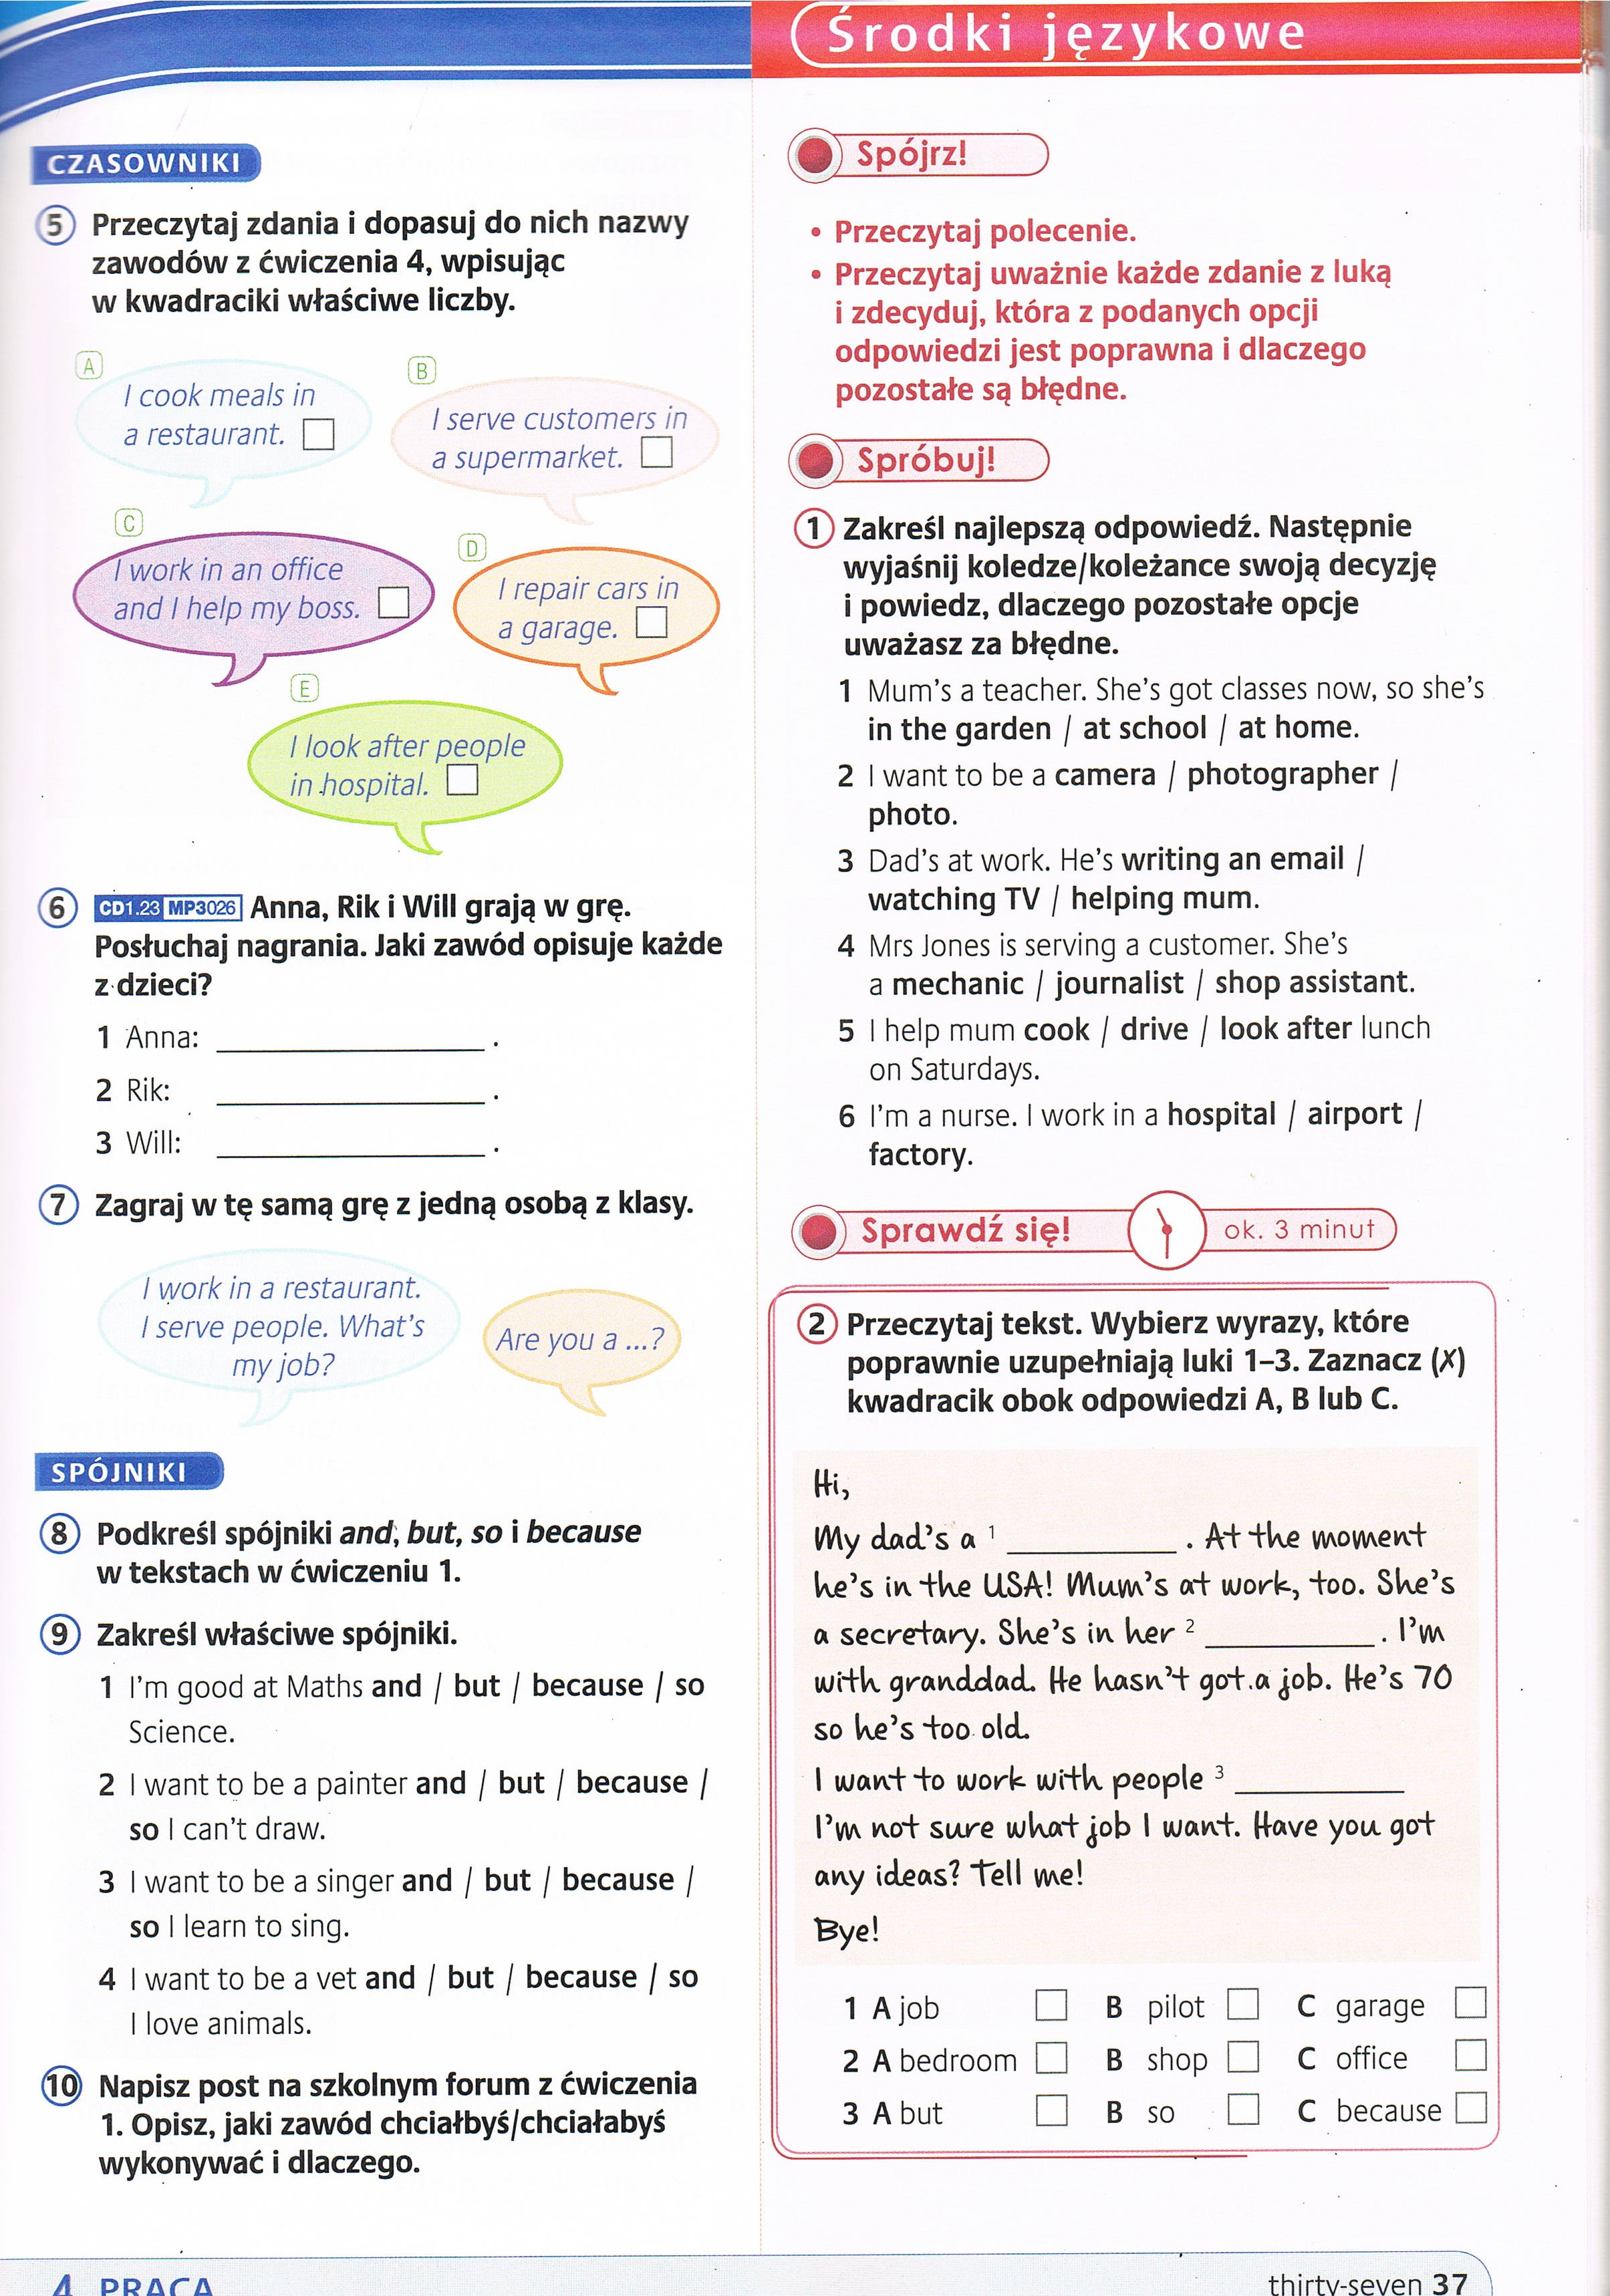 Środki językowe
CZASOWNIKI
5 Przeczytaj zdania i dopasuj do nich nazwy
zawodów z ćwiczenia 4, wpisując
w kwadraciki właściwe liczby.
A
I cook meals in
a restaurant.
B
I serve customers in
a supermarket.
C
I work in an office
and I help my boss.
D
I repair cars in
a garage.
E
I look after people
in hospital.
6 CD1.23 MP3026 Anna, Rik i Will grają w grę.
Posłuchaj nagrania. Jaki zawód opisuje każde
z dzieci?
1 Anna: ____________ .
2 Rik: ____________ .
3 Will: ____________ .
7 Zagraj w tę samą grę z jedną osobą z klasy.
I work in a restaurant.
I serve people. What's
my job?
Are you a ...?
SPÓJNIKI
8 Podkreśl spójniki and, but, so i because
w tekstach w ćwiczeniu 1.
9 Zakreśl właściwe spójniki.
1 I'm good at Maths and / but / because / so
Science.
2 I want to be a painter and / but / because /
so I can't draw.
3 I want to be a singer and / but / because /
so I learn to sing.
4 I want to be a vet and / but / because / so
I love animals.
10 Napisz post na szkolnym forum z ćwiczenia
1. Opisz, jaki zawód chciałbyś/chciałabyś
wykonywać i dlaczego.
Spójrz!
• Przeczytaj polecenie.
• Przeczytaj uważnie każde zdanie z luką
i zdecyduj, która z podanych opcji
odpowiedzi jest poprawna i dlaczego
pozostałe są błędne.
Spróbuj!
1 Zakreśl najlepszą odpowiedź. Następnie
wyjaśnij koledze/koleżance swoją decyzję
i powiedz, dlaczego pozostałe opcje
uważasz za błędne.
1 Mum's a teacher. She's got classes now, so she's
in the garden / at school / at home.
2 I want to be a camera / photographer /
photo.
3 Dad's at work. He's writing an email /
watching TV / helping mum.
4 Mrs Jones is serving a customer. She's
a mechanic / journalist / shop assistant.
5 I help mum cook / drive / look after lunch
on Saturdays.
6 I'm a nurse. I work in a hospital / airport /
factory.
Sprawdź się! ok. 3 minut
2 Przeczytaj tekst. Wybierz wyrazy, które
poprawnie uzupełniają luki 1–3. Zaznacz (✗)
kwadracik obok odpowiedzi A, B lub C.
Hi,
My dad's a 1 ____________ . At the moment
he's in the USA! Mum's at work, too. She's
a secretary. She's in her 2 ____________ . I'm
with granddad. He hasn't got a job. He's 70
so he's too old.
I want to work with people 3 ____________
I'm not sure what job I want. Have you got
any ideas? Tell me!
Bye!
1 A job B pilot C garage
2 A bedroom B shop C office
3 A but B so C because
4 PRACA
thirty-seven 37